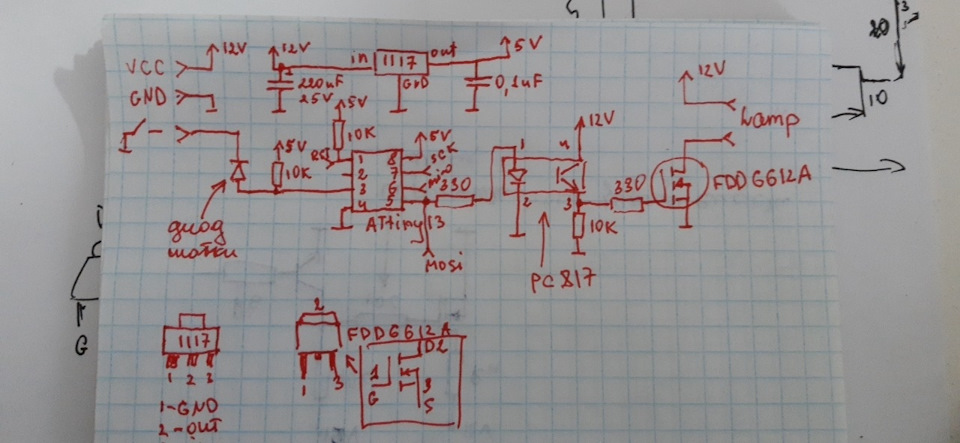 VCC
12V
12V
in
1117
out
5V
GND
220uF
25V
GND
0,1uF
12V
Lamp
5V
10K
5V
10K
RST
1
2
3
4
8
7
6
5
5V
SCK
330
ATtiny 13
MOSi
1
2
4
3
12V
330
10K
PC 817
FDD6612A
диод
20
3
10
G
1117
1 2 3
1-GND
2-OUT
2
1
3
FDD6612A
D2
1
G
3
S